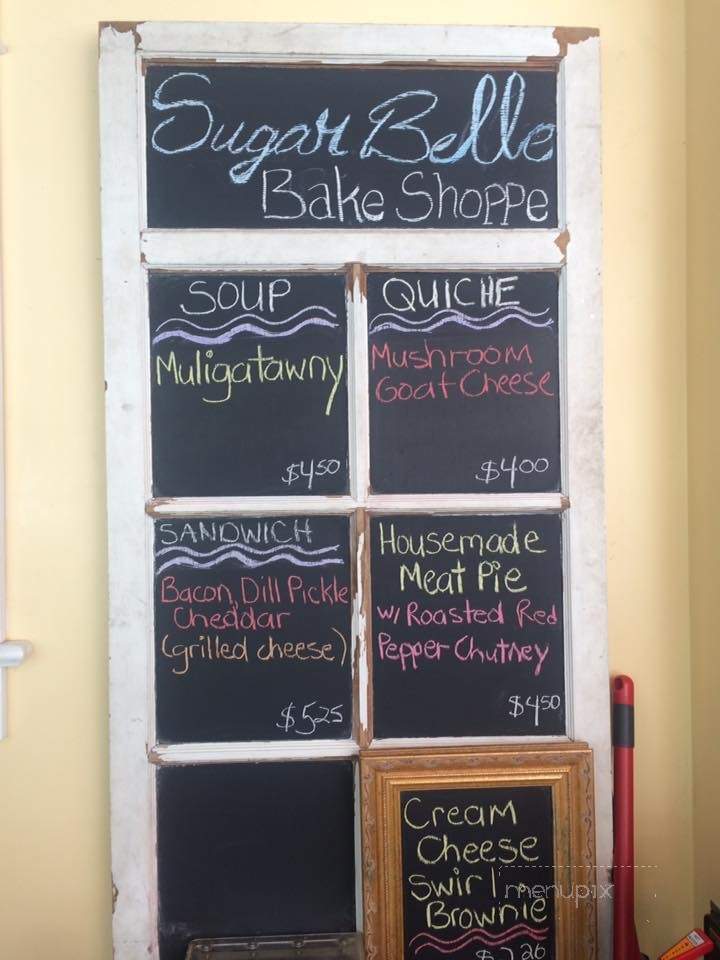 Sugar Belle
Bake Shoppe
SOUP
Muligatawny
$4.50
QUICHE
Mushroom
Goat Cheese
$4.00
SANDWICH
Bacon, Dill Pickle
Cheddar
(grilled cheese)
$5.25
Housemade
Meat Pie
w/ Roasted Red
Pepper Chutney
$4.50
Cream
Cheese
Swirl
Brownie
menupix